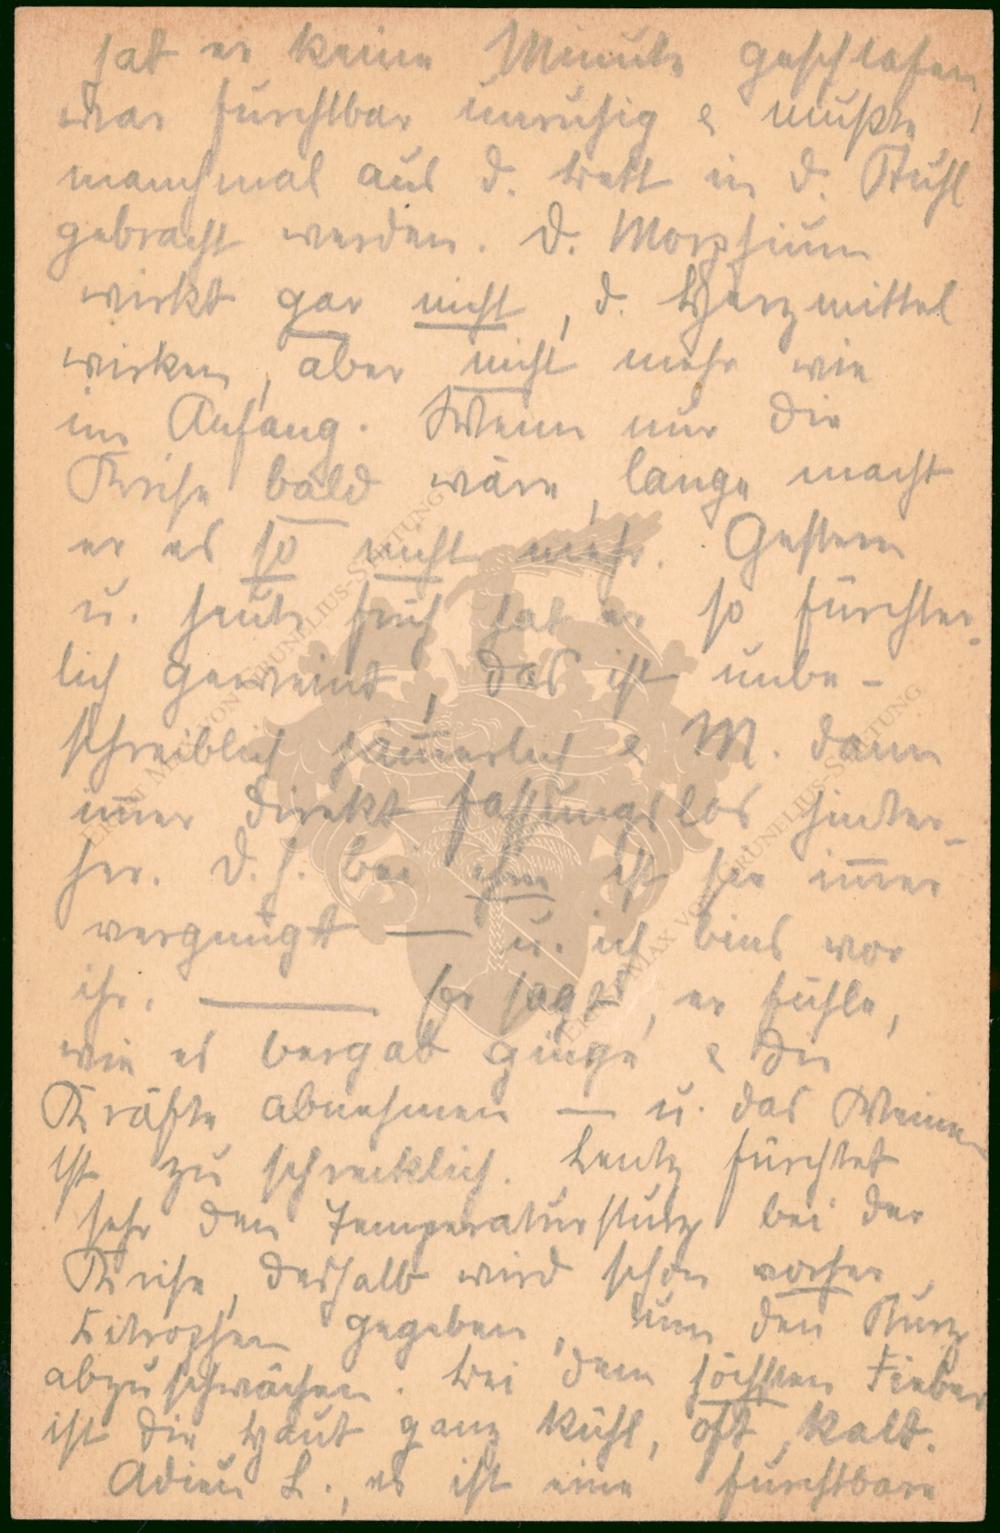 hat er keine Minute geschlafen,
war furchtbar unruhig & mußte
manchmal aus d. Bett in d. Stuhl
gebracht werden. D. Morphium
wirkt gar nicht, d. Herzmittel
wirken, aber nicht mehr wie
im Anfang. Wenn nur die
Krise bald wäre, lange macht
er es so nicht mehr. Gestern
u. heute früh hat er so fürchter-
lich geweint, das ist unbe-
schreiblich jam̅erlich & M. dann
im̅er direkt fassungslos hinter-
her. D.h. bei ihm ist sie im̅er
vergnügt — u. ich bins vor
ihr. — Er sagt, er fühle,
wie es bergab ginge & die
Kräfte abnehmen — u. das Weinen
ist zu schrecklich. fürchtet
sehr den Temperatursturz bei der
Krise, deshalb wird schon vorher
gegeben, um den Sturz
abzuschwächen. Bei dem höchsten Fieber
ist die Haut ganz kühl, oft kalt.
Adieu L., es ist eine furchtbare
ERNST MAX VON GRUNELIUS-STIFTUNG
ERNST MAX VON GRUNELIUS-STIFTUNG